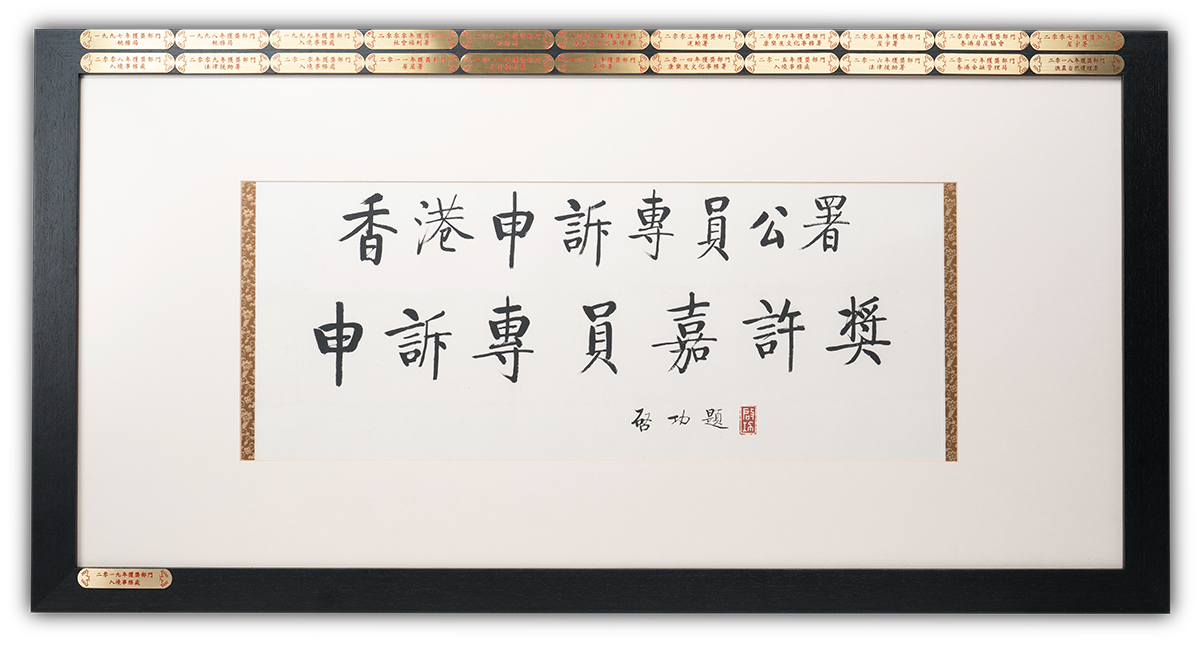 一九九七年獲獎部門
稅務局
一九九八年獲獎部門
稅務局
一九九九年獲獎部門
入境事務處
二零零零年獲獎部門
社會福利署
二零零三年獲獎部門
二零零四年獲獎部門
康樂及文化事務署
二零零五年獲獎部門
屋宇署
二零零六年獲獎部門
香港房屋協會
二零零七年獲獎部門
屋宇署
二零零八年獲獎部門
入境事務處
二零零九年獲獎部門
法律援助署
二零一零年獲獎部門
入境事務處
二零一一年獲獎部門
二零一四年獲獎部門
康樂及文化事務署
二零一五年獲獎部門
入境事務處
二零一六年獲獎部門
法律援助署
二零一七年獲獎部門
香港金融管理局
二零一八年獲獎部門
漁農自然護理署
香港申訴專員公署
申訴專員嘉許獎
啓功題
二零一九年獲獎部門
入境事務處